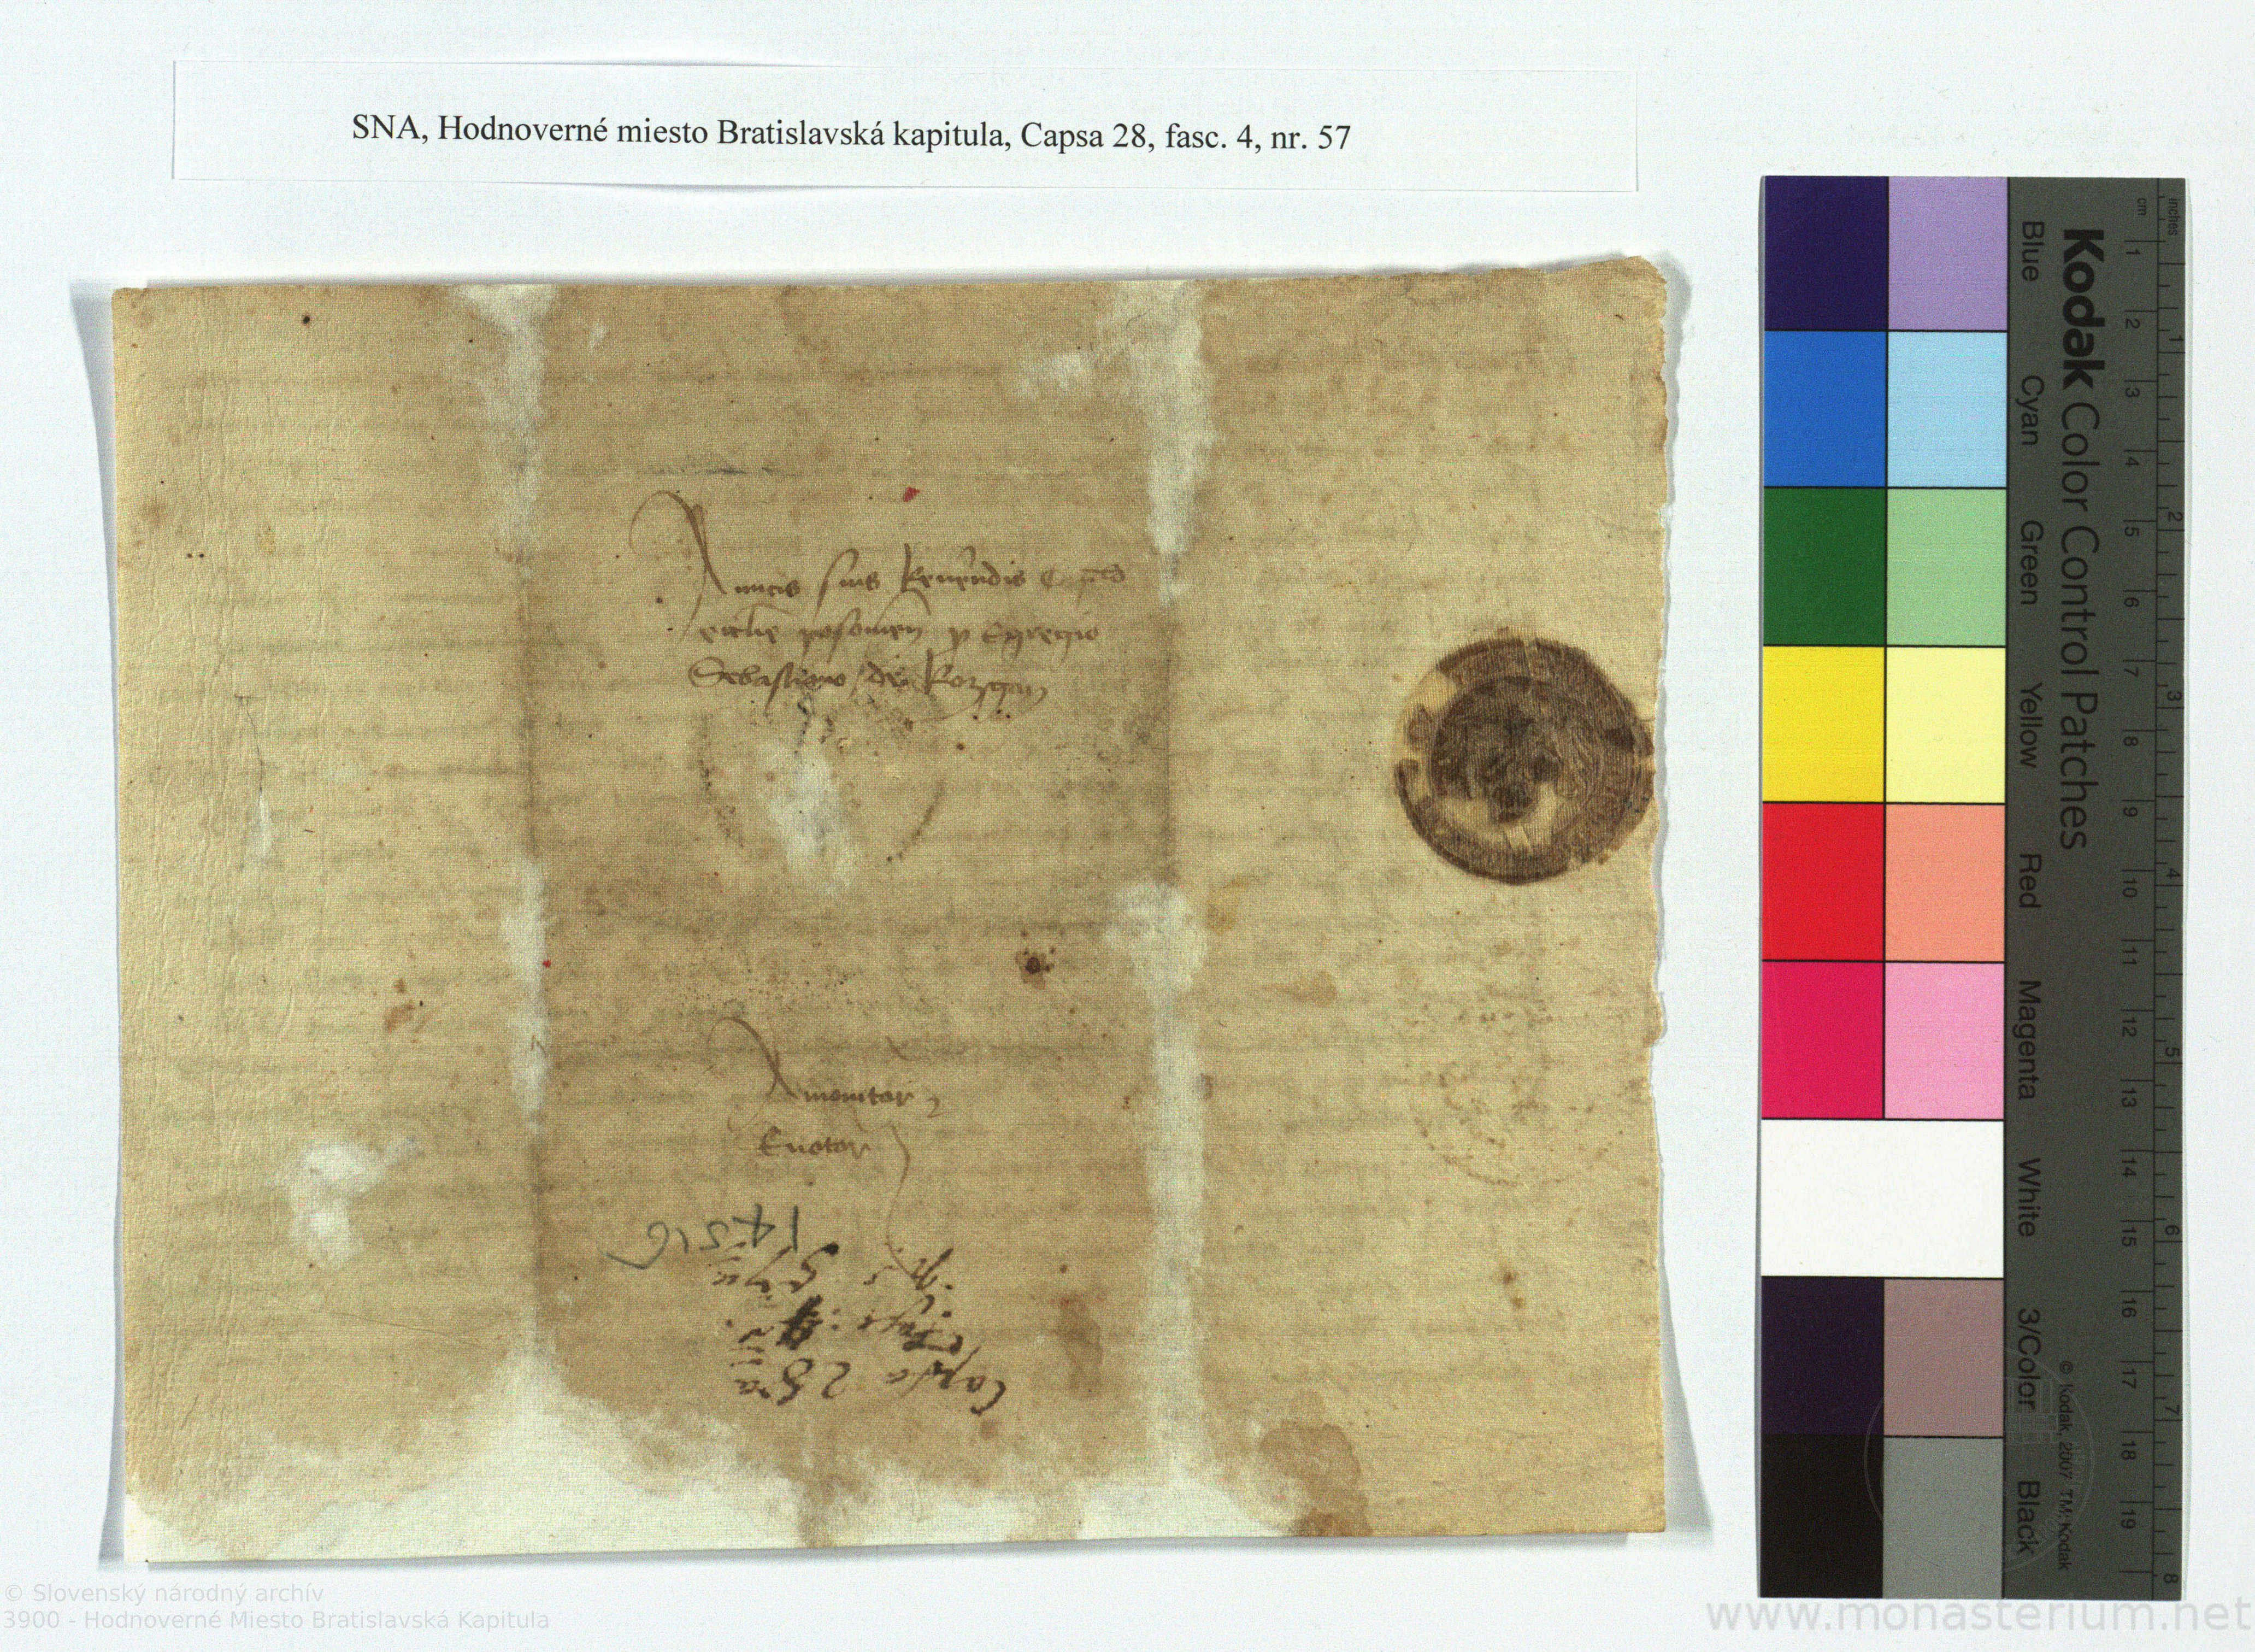 SNA, Hodnoverné miesto Bratislavská kapitula, Capsa 28, fasc. 4, nr. 57
Amicis suis Reuerndis
eccl̄ie posonieñ p Egregio
Sebastiano de Rozgon
Amonitor
Euotor
14516
57
4
Capsa 28
Kodak Color Control Patches
Blue Cyan Green Yellow Red Magenta White 3/Color Black
inches 1 2 3 4 5 6 7 8
cm 1 2 3 4 5 6 7 8 9 10 11 12 13 14 15 16 17 18 19
© Kodak, 2007 TM: Kodak
© Slovenský národný archív
3900 - Hodnoverné Miesto Bratislavská Kapitula
www.monasterium.net